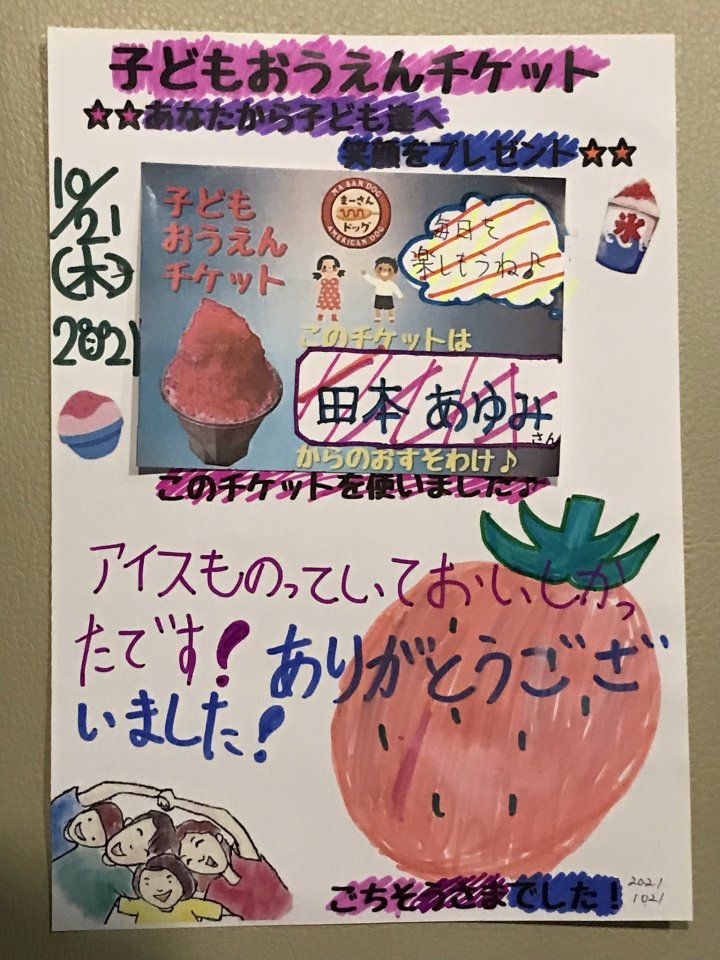 子どもおうえんチケット
★★あなたから子ども達へ
笑顔をプレゼント★★
10/21
(木)
2021
子ども
おうえん
チケット
MA-SAN DOG
まーさん
ドッグ
AMERICAN DOG
毎日を
楽しもうね♪
氷
このチケットは
田本 あゆみ
さん
からのおすそわけ♪
このチケットを使いました♪
アイスものっていておいしかっ
たです！ありがとうござ
いました！
ごちそうさまでした！
2021
1021